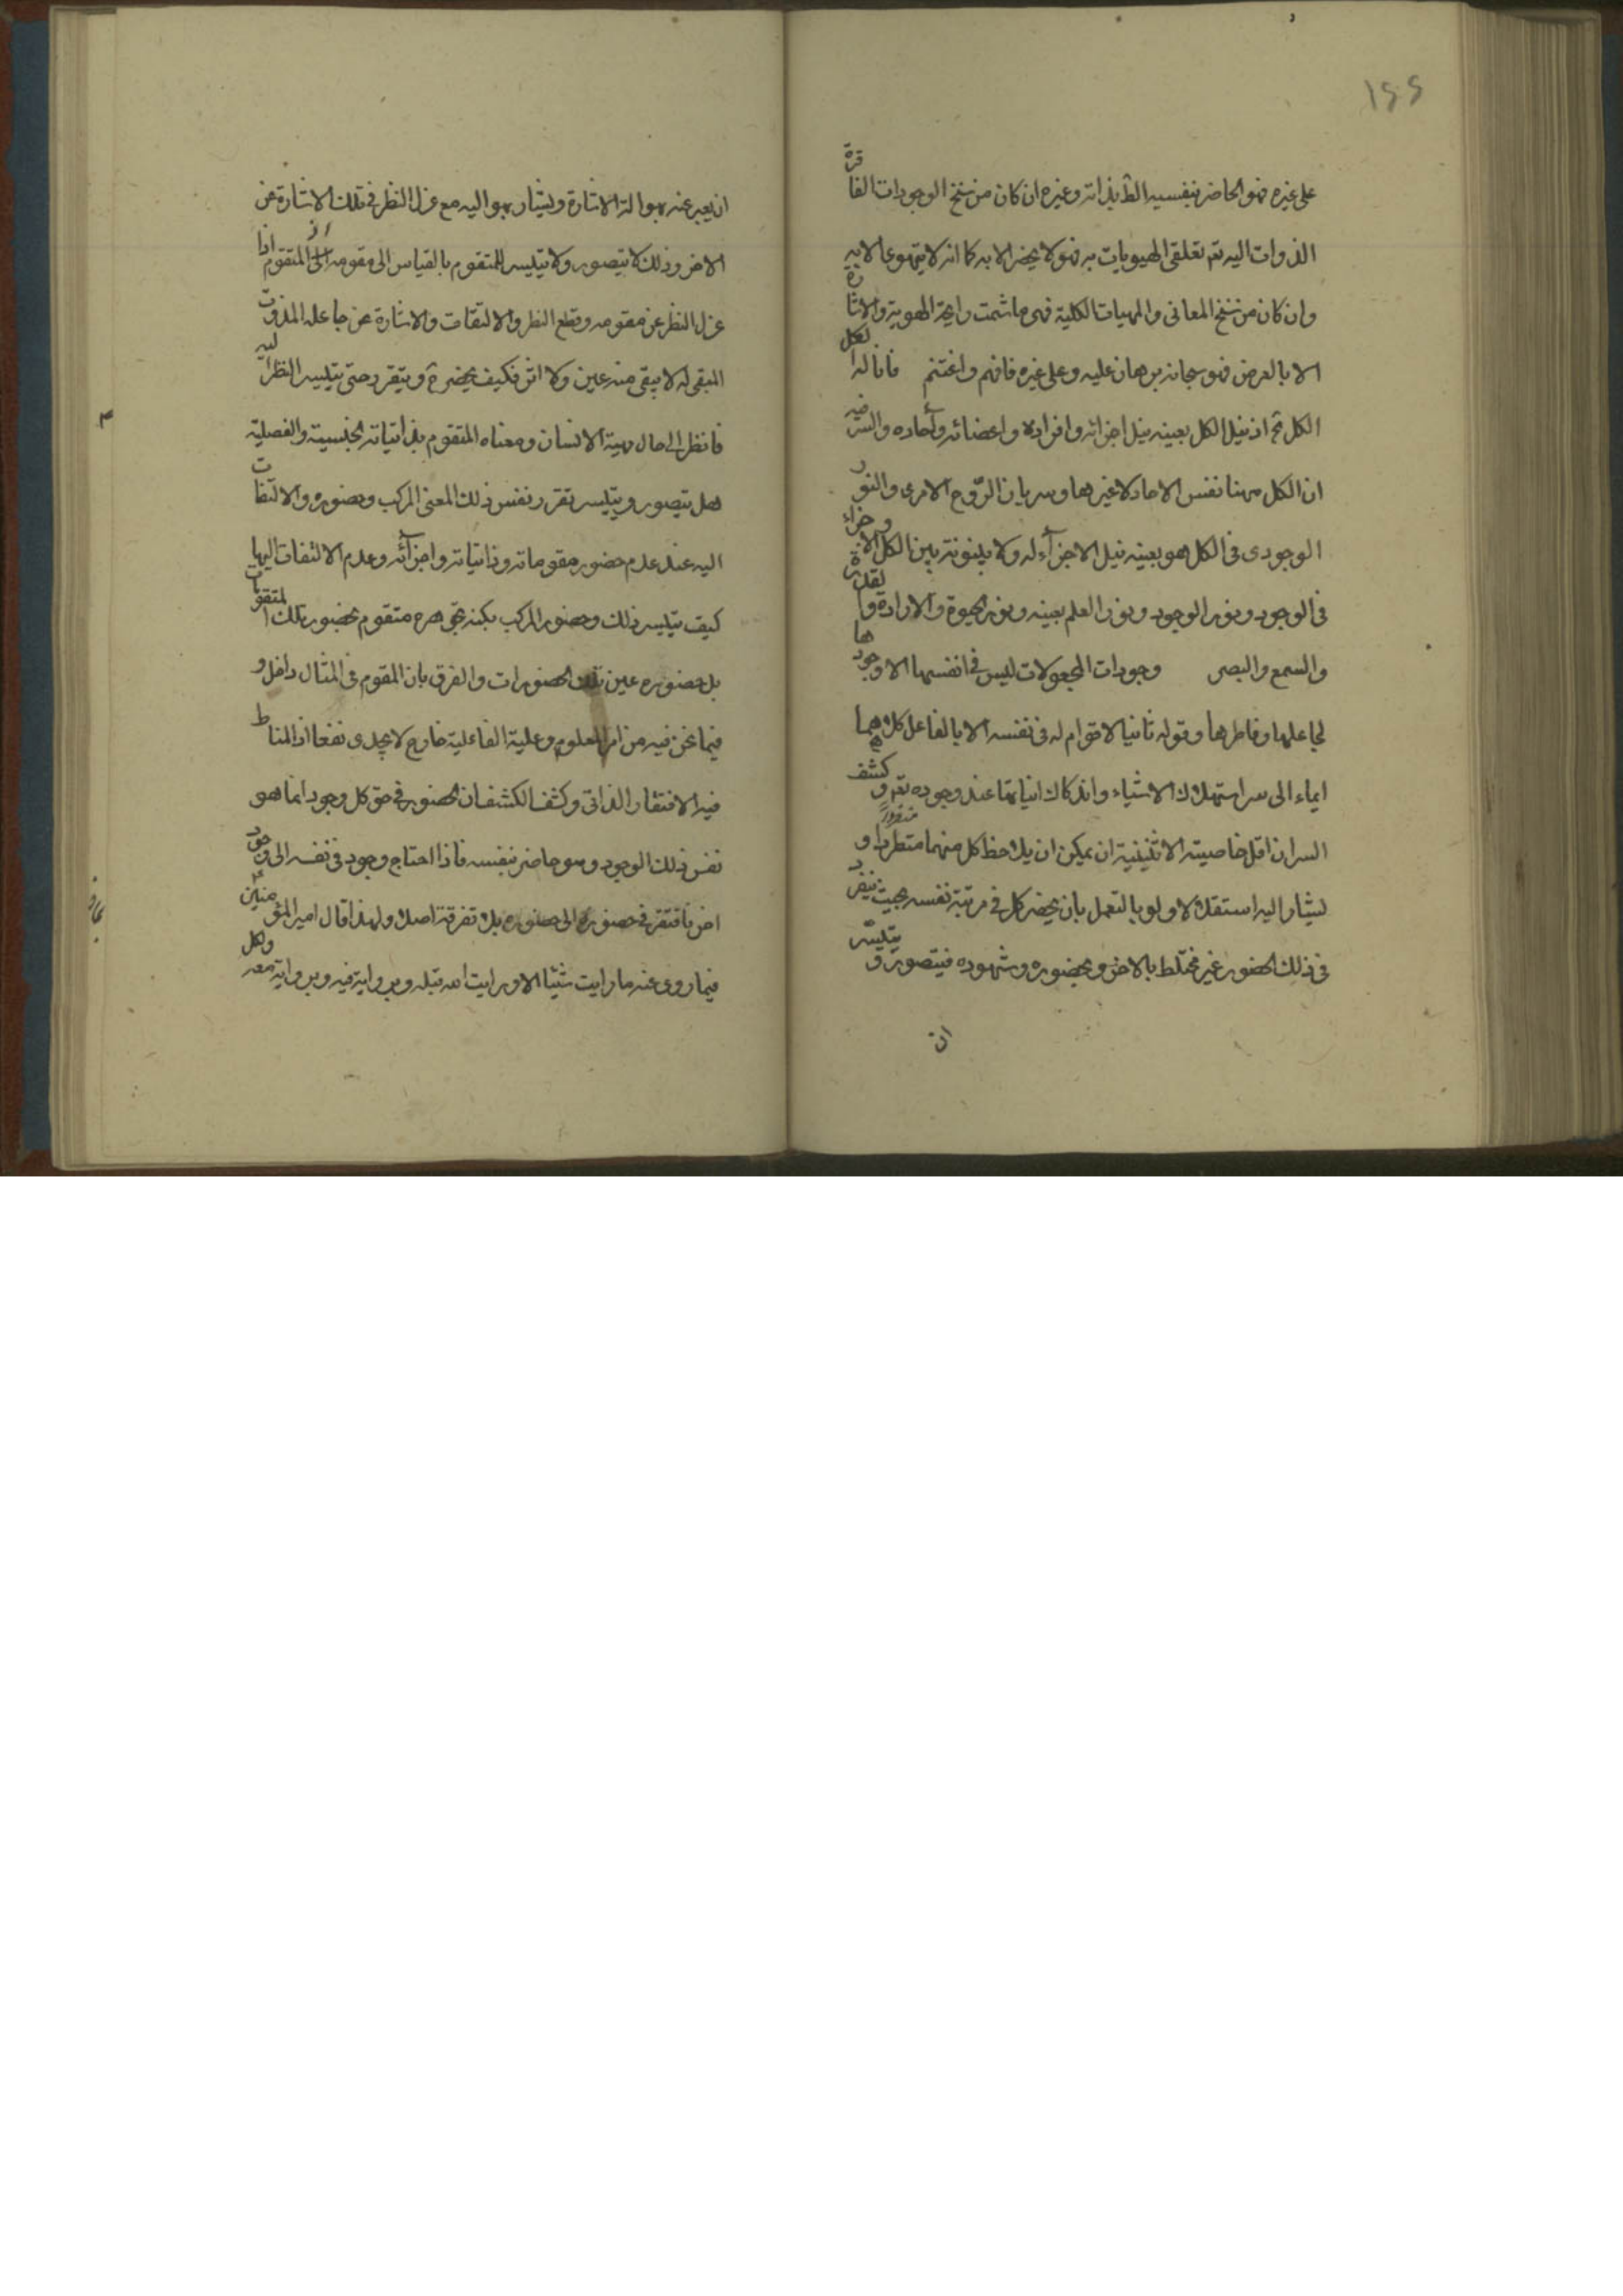 ١٥٥
على غيره فهو الحاضر بنفسه الظ بذاته وغيره ان كان من سنخ الوجودات الفاقرة
الذوات اليه تعم تعلقى الهويات به فهو لا يحضر الا به كما انه لا يتهوى الا به
وان كان من سنخ المعانى والمهيات الكلية فهى ما شمت رايحة الهوية والاشارة
الا بالعرض فهو سبحانه برهان عليه وعلى غيره فافهم واغتنم فانا لها لكل
الكل ح اذ نيل الكل بعينه نيل اجزائه وافراده واعضائه وآحاده والسر فيه
ان الكل ههنا نفس الاحاد لا غيرها وسريان الرّوح الامرى والنور
الوجودى فى الكل هو بعينه نيل الاجزآء له ولا بينونة بين الكل والاجزاء
فى الوجود ونور الوجود ونور العلم بعينه ونور الحيوة والارادة والقدرة
والسمع والبصر وجودات المجعولات ليس فى انفسها الا وجودها
لجاعلها وفاطرها وقوله ثانيا لا قوام له فى نفسه الا بالفاعل كلاهما
ايماء الى سر استهلاك الاشياء واندكاك انياتها عند وجوده تعم وكشف
السر ان اقل خاصية الاثنينية ان يمكن ان يلاحظ كل منهما متطردا و
منفردا
ليشار اليه استقلالا ولو بالتعمل بان يحضر كل فى مرتبة نفسه بحيث ينفرد
فى ذلك الحضور غير مختلط بالاخر وبحضوره وشهوده فيتصور ويتيسّر
ان
ان يعبر عنه بهو الة الاشارة ويشار بهو اليه مع عزل النظر فى تلك الاشارة عن
الاخر وذلك لا يتصور ولا يتيسر للمتقوم بالقياس الى مقومه اذ المتقوم اذا
عزل النظر عن مقومه وقطع النظر والالتفات والاشارة عن جاعله المذوت
المبقى له لا يبقى منه عين ولا اثر فكيف يحضر ح ويتقرر حتى يتيسر النظر اليه
فانظر الى حال مهية الانسان ومعناه المتقوم بذاتياته الجنسية والفصلية
هل يتصور ويتيسر تقرر نفس ذلك المعنى المركب وحضوره والالتفات
اليه عند عدم حضور مقوماته وذاتياته واجزآئه وعدم الالتفات اليها
كيف يتيسر ذلك وحضور المركب بكنه متقوم بحضور تلك المتقومات
بل حضوره عين تلك الحضورات والفرق بان المقوم فى المثال داخل و
فيما نحن فيه من امر المعلوم وعلية الفاعلية خارج لا يجدى نفعا اذ المناط
فيه الافتقار الذاتى وكشف الكشف ان الحضور فى حق كل وجود انما هو
نفس ذلك الوجود وهو حاضر بنفسه فاذا احتاج وجود فى نفسه الى وجود
اخر فافتقر فى حضوره الى حضوره بلا تفرقة اصلا ولهذا قال امير المؤمنين
فيما روى عنه ما رايت شيئا الا ورايت الله قبله وبرواية فيه وبرواية معه ولكل